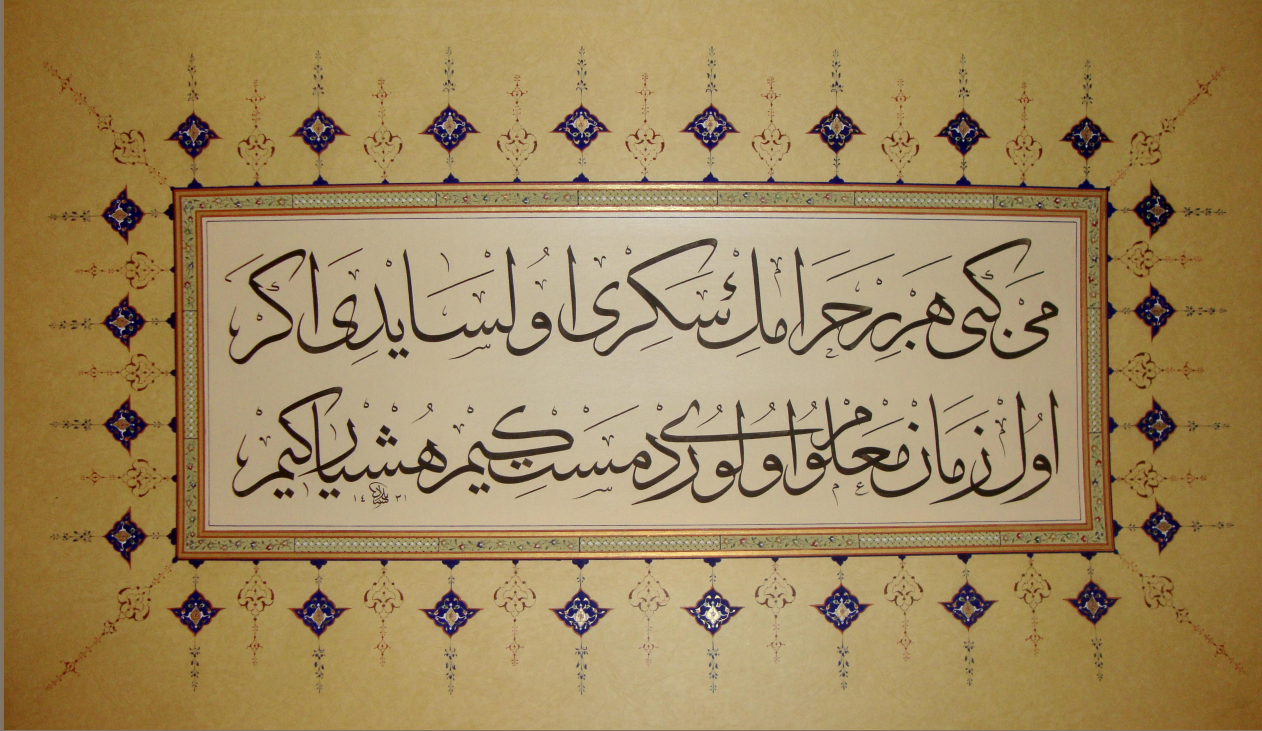 می كبی هر بر حرامك سكری اولسایدی اكر
اول زمان معلوم اولوردی مست كیم هشیار كیم
١٤٣١